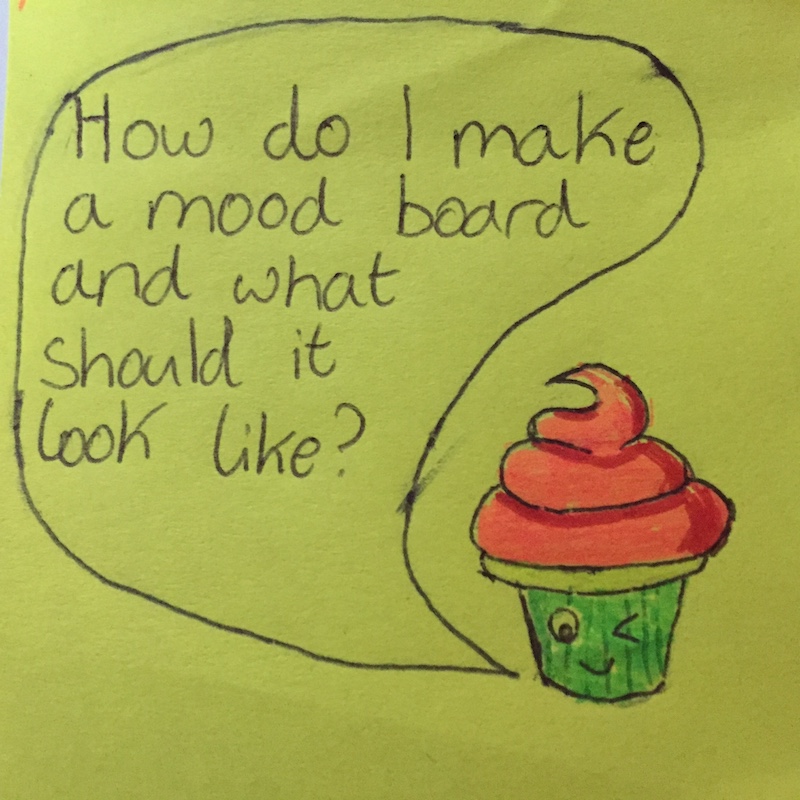 How do I make
a mood board
and what
should it
look like?